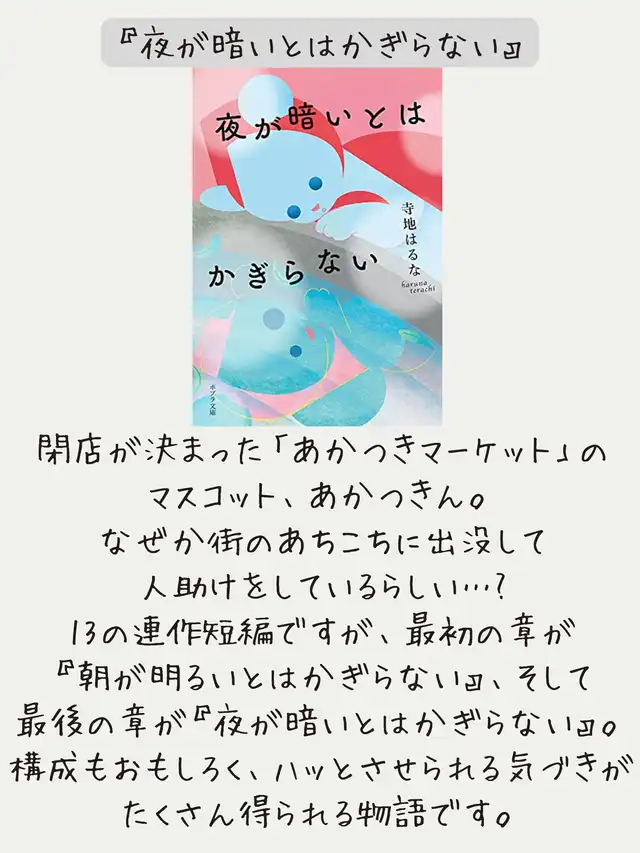 『夜が暗いとはかぎらない』
夜が暗いとは
かぎらない
寺地はるな
haruna
terachi
ポプラ文庫
閉店が決まった「あかつきマーケット」の
マスコット、あかつきん。
なぜか街のあちこちに出没して
人助けをしているらしい…?
13の連作短編ですが、最初の章が
『朝が明るいとはかぎらない』、そして
最後の章が『夜が暗いとはかぎらない』。
構成もおもしろく、ハッとさせられる気づきが
たくさん得られる物語です。